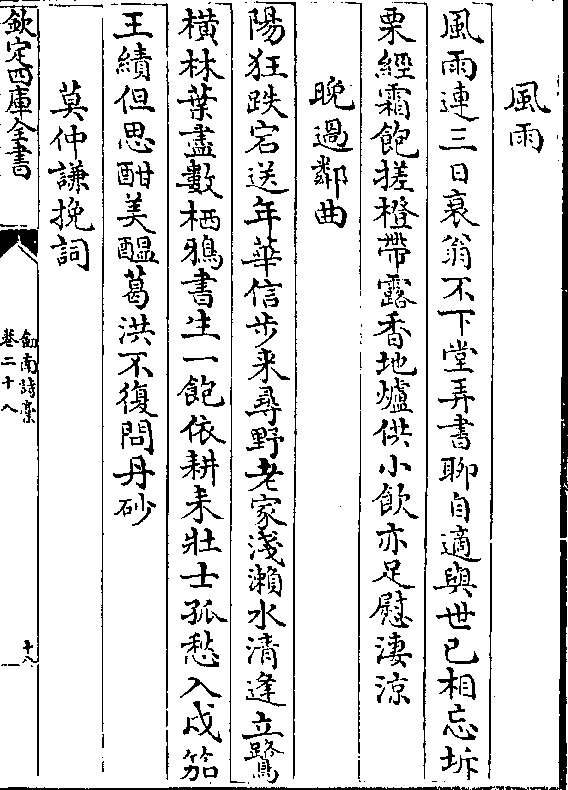 風雨
風雨連三日衰翁不下堂弄書聊自適與世已相忘坼
栗經霜飽搓橙帶露香地爐供小飲亦足慰淒涼
晚過鄰曲
陽狂跌宕送年華信步来尋野老家淺瀨水清逢立鷺
橫林葉盡數栖鴉書生一飽依耕耒壯士孤愁入戍笳
王績但思酣美醖葛洪不復問丹砂
莫仲謙挽詞
欽定四庫全書
劍南詩稾
卷二十八
十八